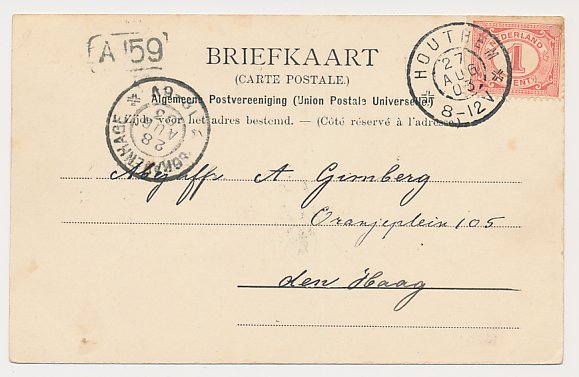 A 59
BRIEFKAART
(CARTE POSTALE.)
Algemeene Postvereeniging (Union Postale Universelle)
Zijde voor het adres bestemd. — (Côté réservé à l'adresse)
NEDERLAND
1
CENT
HOUTHEM
27
AUG
03
8-12V
'S GRAVENHAGE
28
AUG
03
A Gimberg
Oranjeplein 105
den Haag